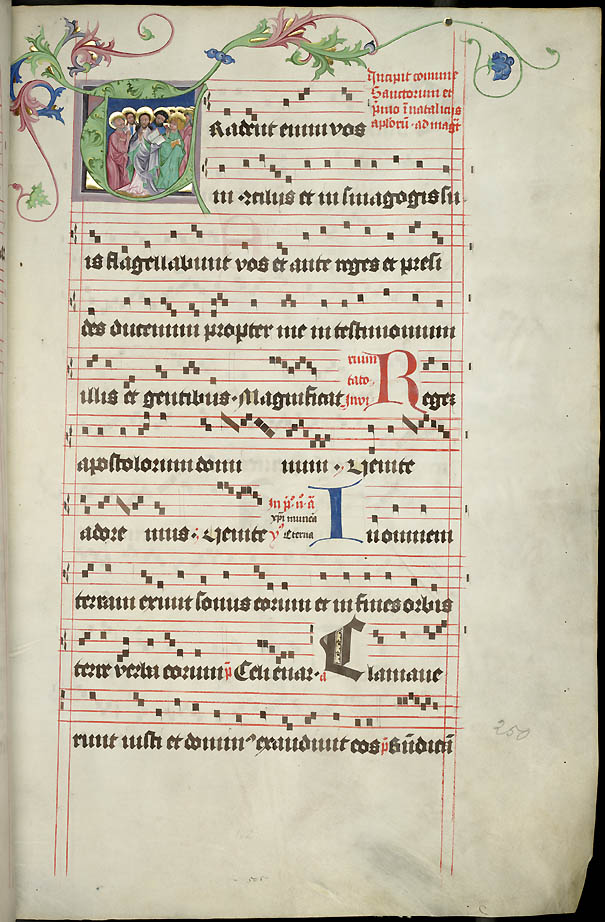 Incipit comune
Sanctorum et
primo in nataliciis
apostolorum ad magt
Tradent enim vos
in conciliis et in sinagogis su
is flagellabunt vos et ante reges et presi
des ducemini propter me in testimonium
illis et gentibus. Magnificat Invi
tato
rium Regez
apostolorum domi num. Venite
adore mus. Venite In p. n. a
xpi munera
Eterna In omnem
terram exivit sonus eorum et in fines orbis
terre verba eorum p Celi enar. a Clamave
runt iusti et domin exaudivit eos p Bndica
250